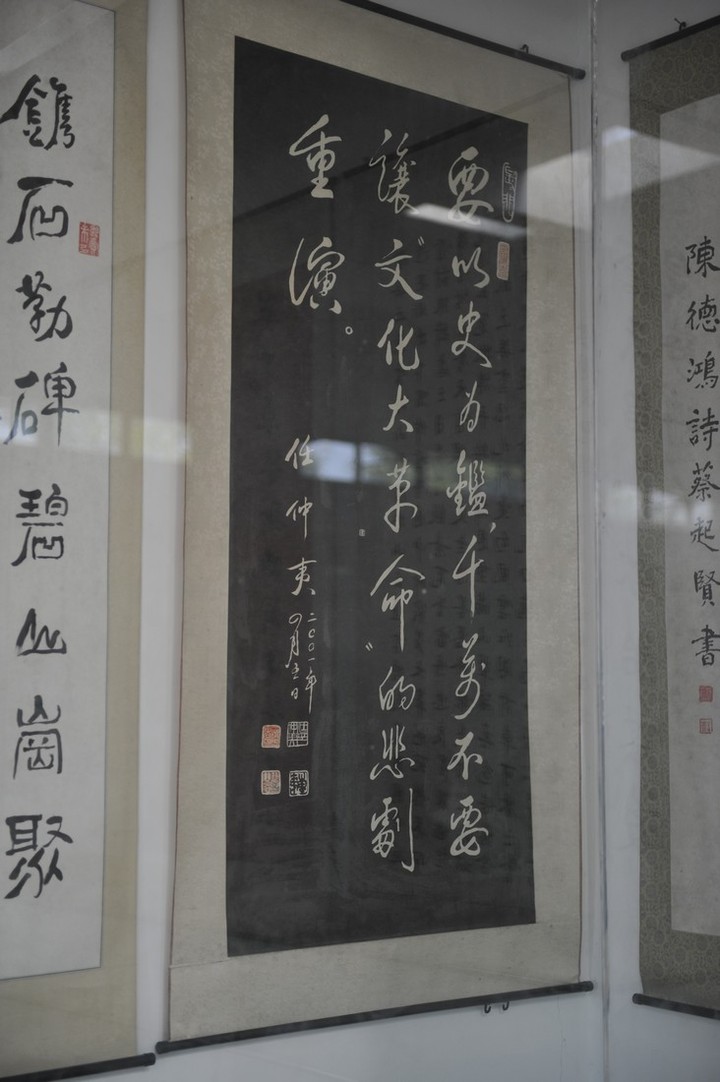 要以史为鑑，千萬不要
讓“文化大革命”的悲劇
重演。
任仲夷
二〇〇一年
月五日
陳德鴻詩蔡起賢書
鐫石勒碑碧山崗聚